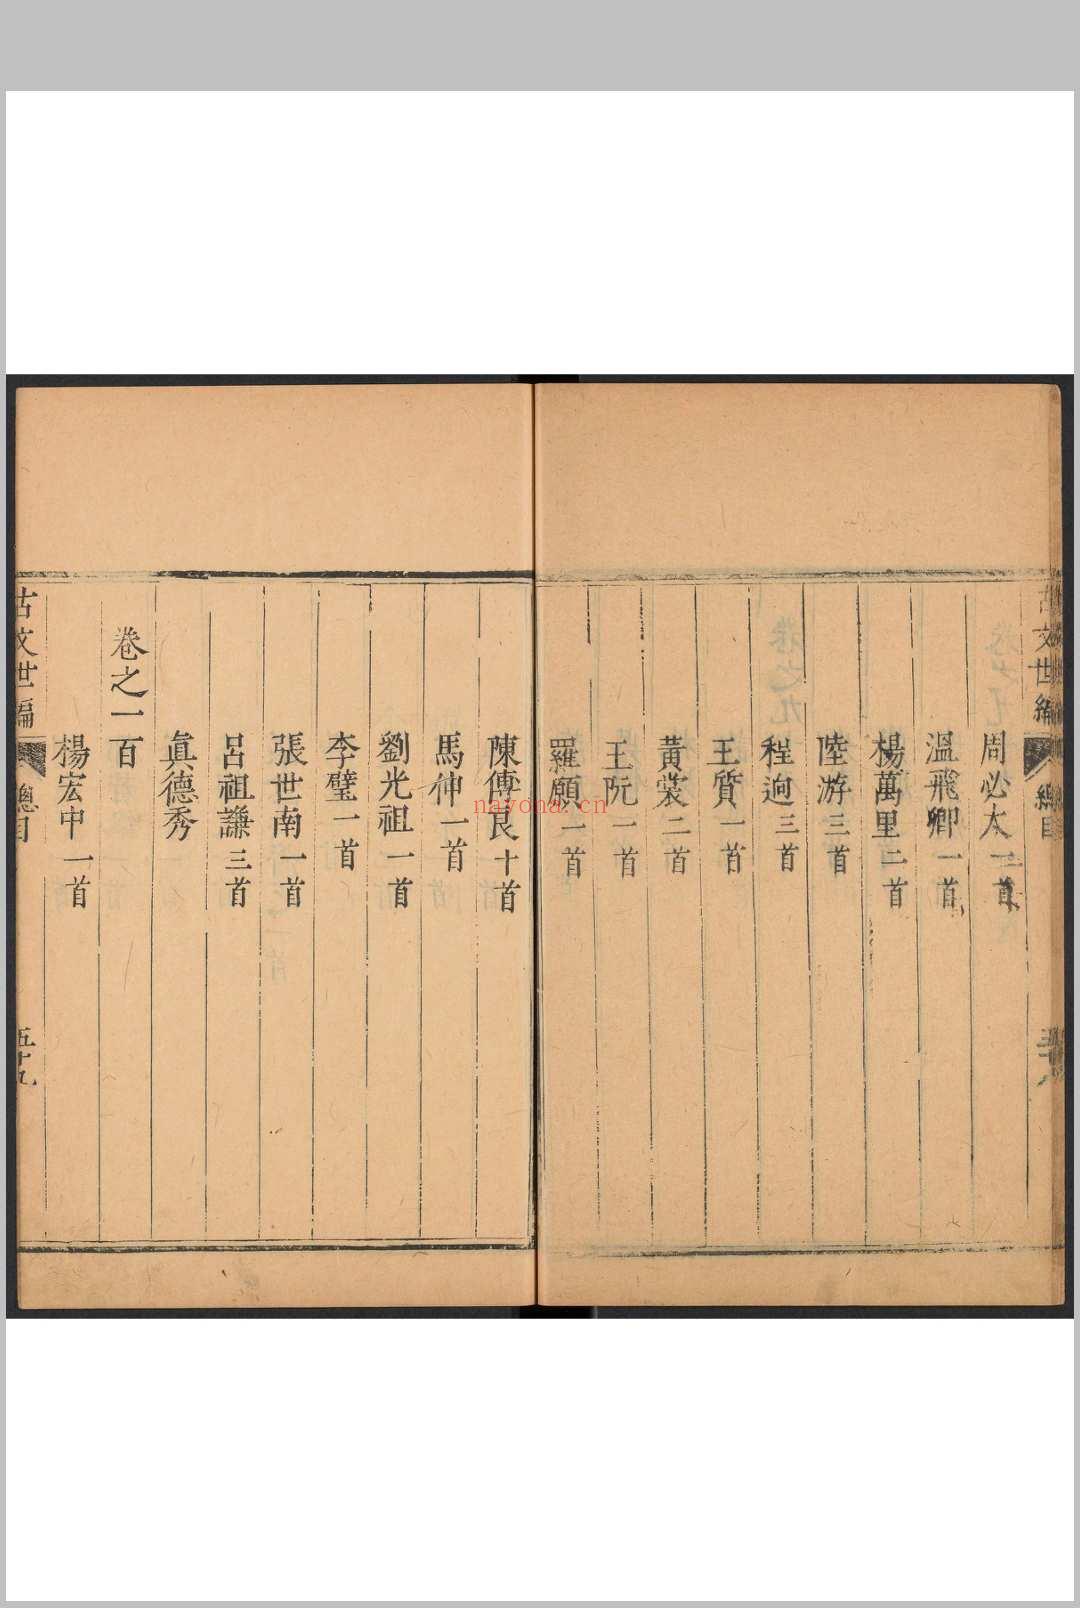 古文世編 總目
周必大 一首
溫飛卿 一首
楊萬里 二首
陸游 三首
程迥 三首
王質 一首
黃裳 二首
王阮 一首
羅願 一首
陳傅良 十首
馬伸 一首
劉光祖 一首
李璧 一首
張世南 一首
呂祖謙 三首
真德秀
卷之一百
楊宏中 一首
古文世編 總目 五十九
nayona.cn